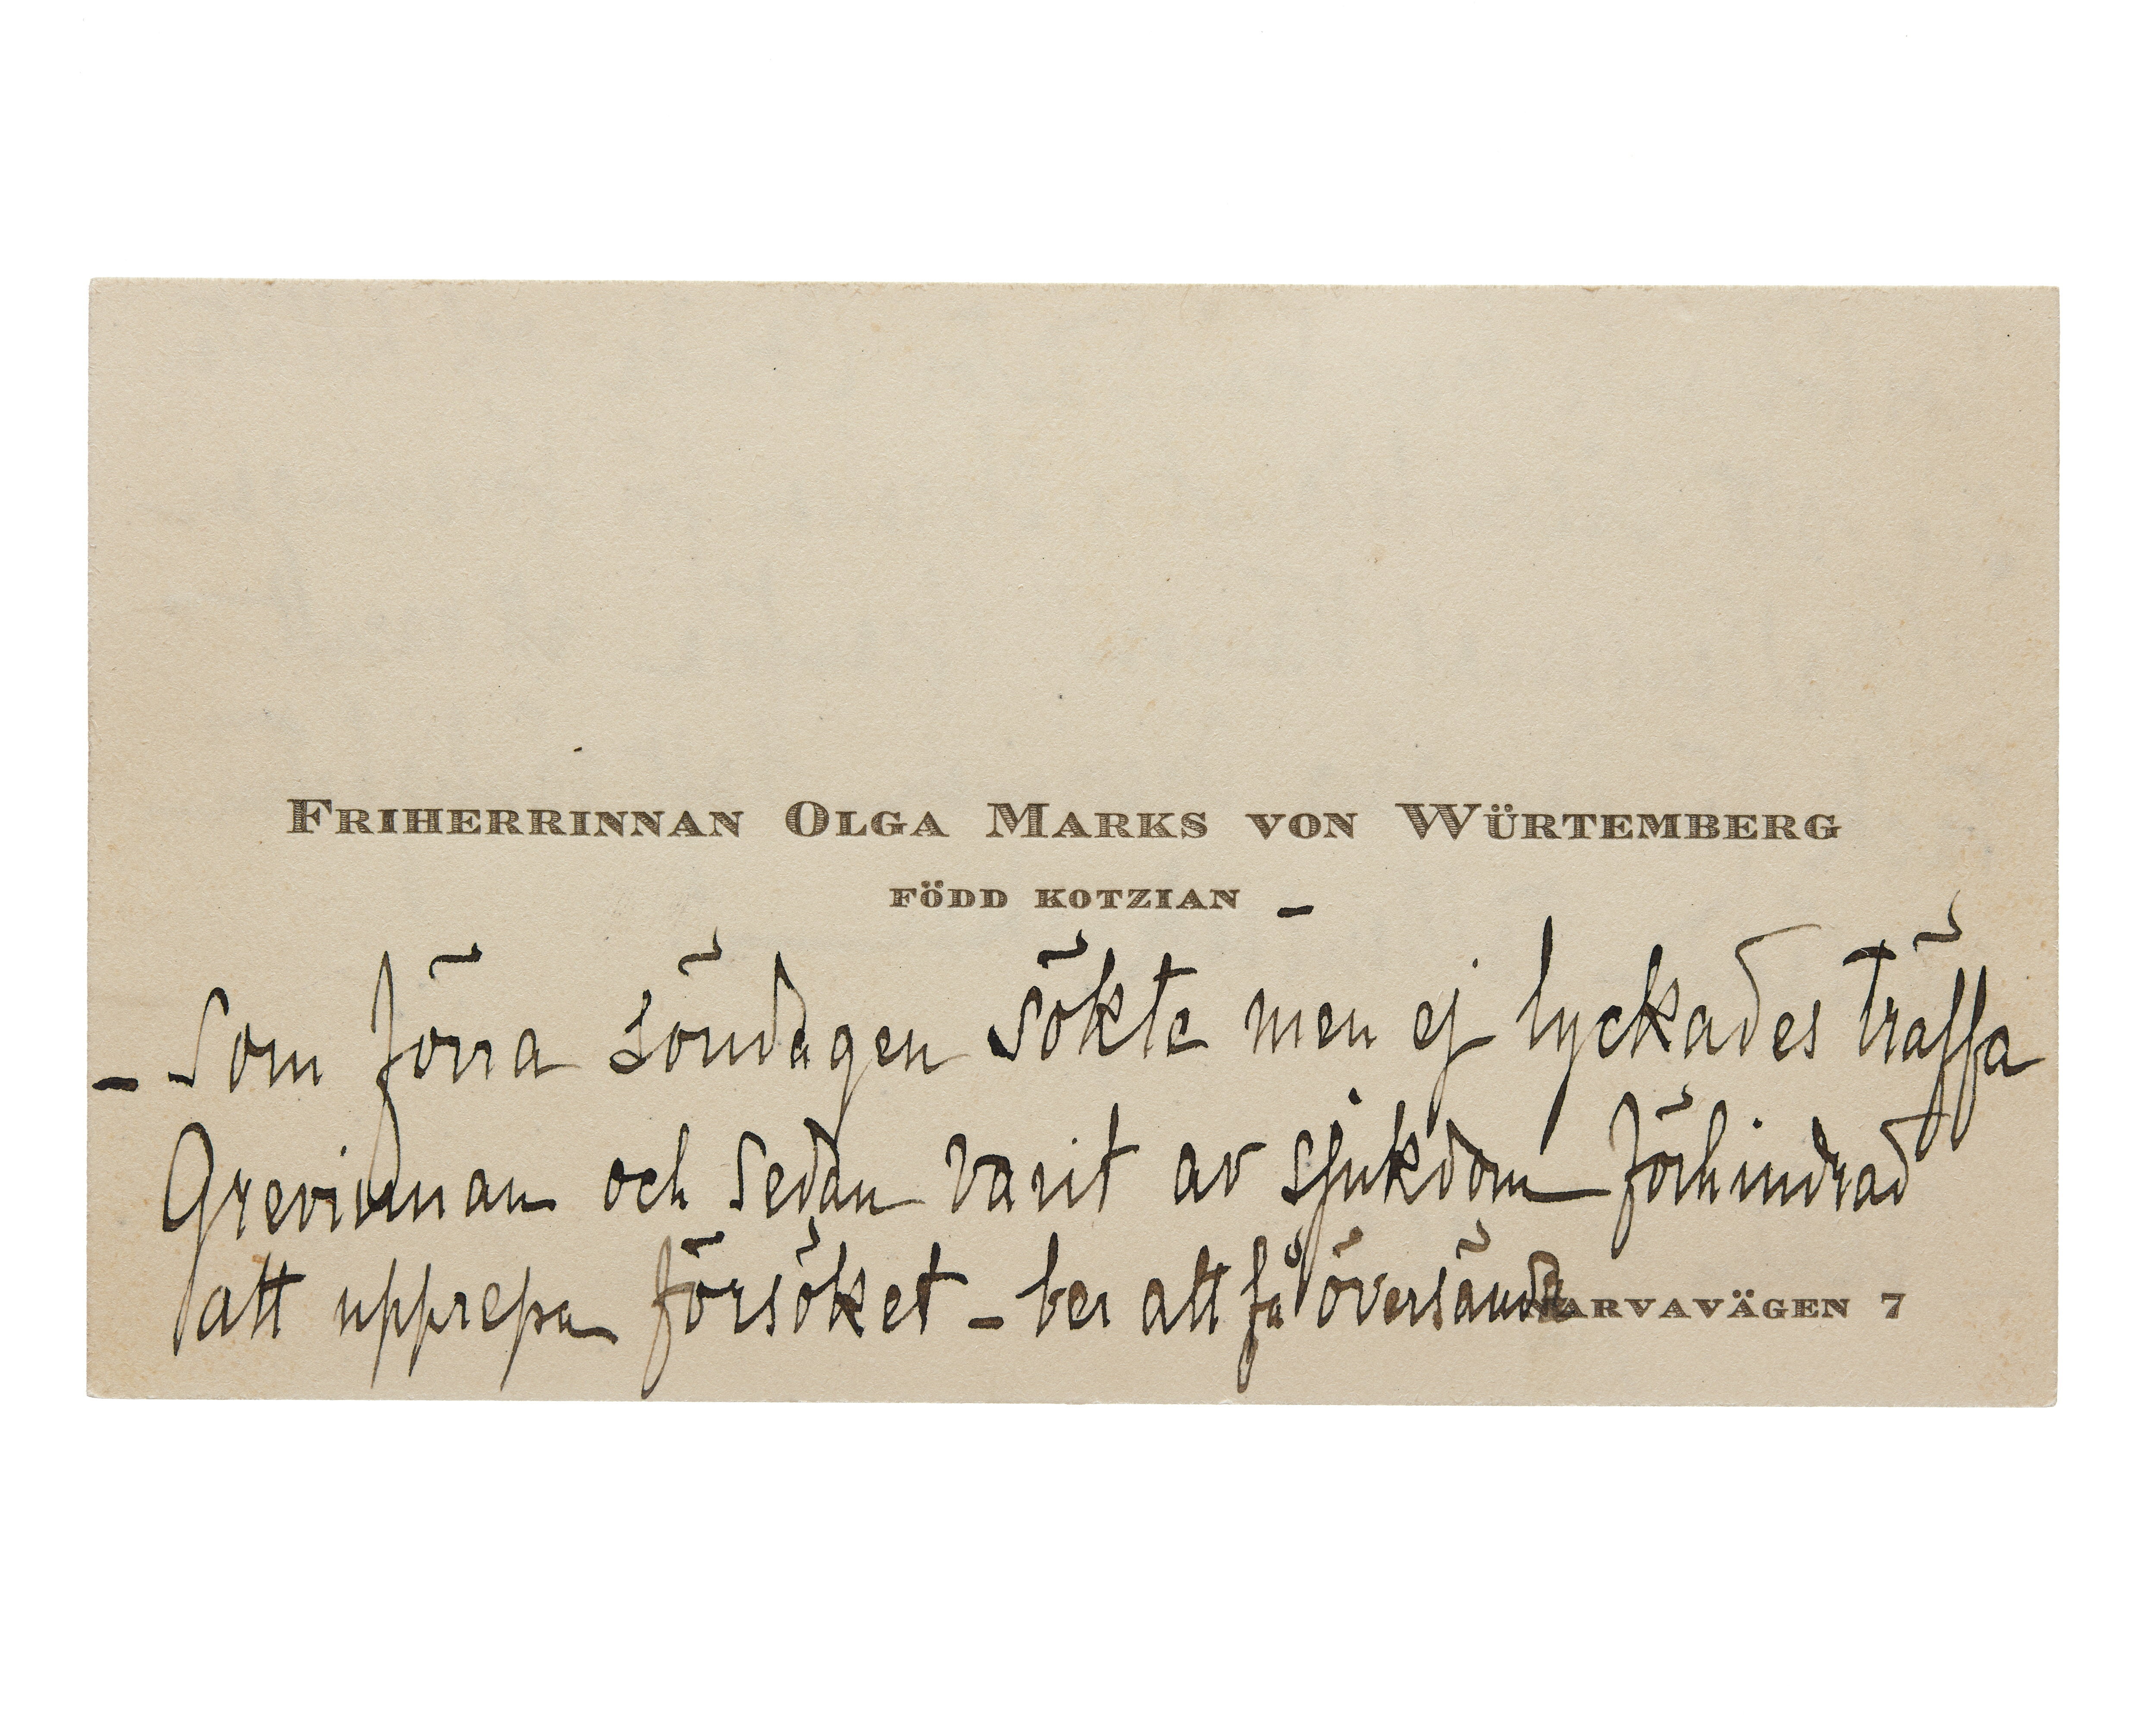 FRIHERRINNAN OLGA MARKS VON WÜRTEMBERG
FÖDD KOTZIAN –
– som förra söndagen sökte men ej lyckades träffa
Grevinnan och sedan varit av sjukdom förhindrad
att upprepa försöket – ber att få översända
NARVAVÄGEN 7